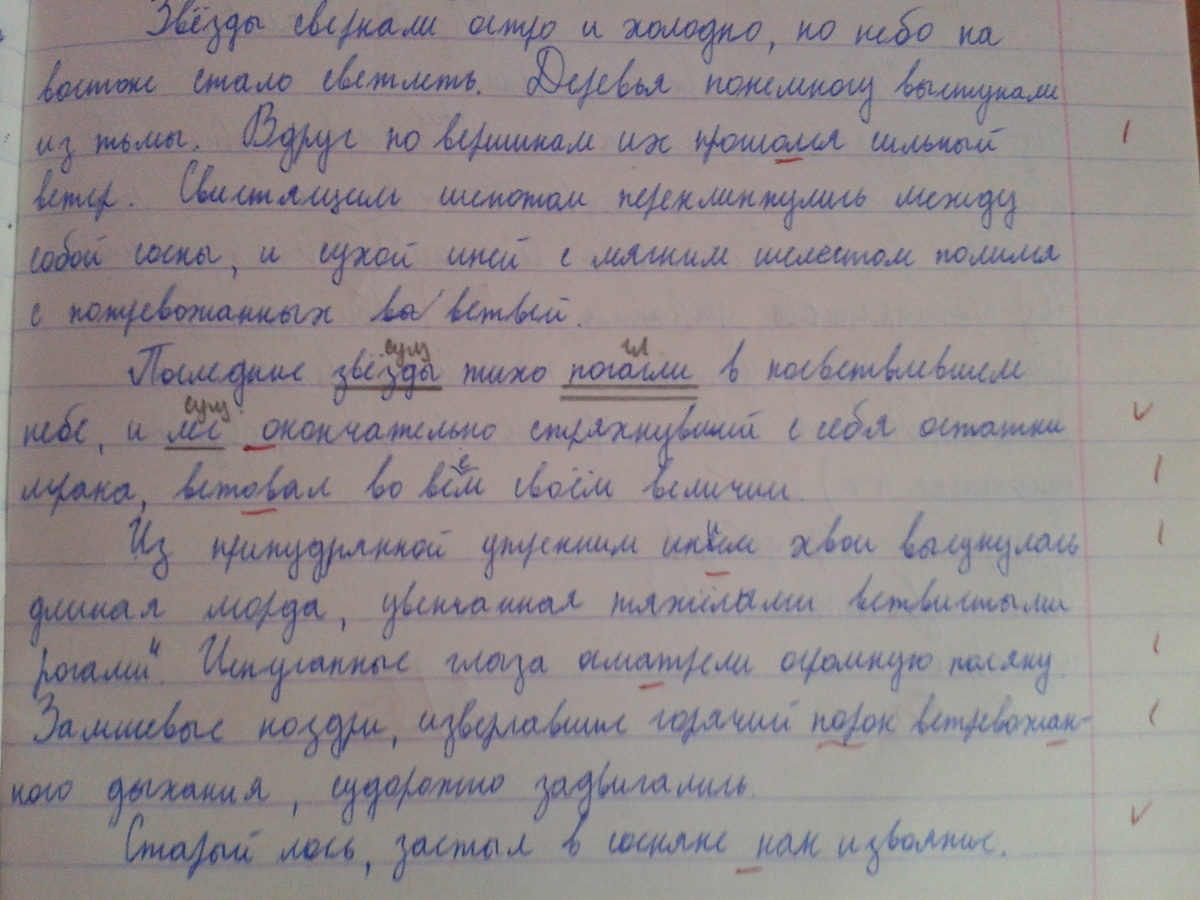 Звёзды сверкали остро и холодно, но небо на
востоке стало светлеть. Деревья понемногу выступали
из тьмы. Вдруг по вершинам их прошолся сильный
ветер. Свистящим шепотом перекликнулись между
собой сосны, и сухой иней с мягким шелестом полился
с потревожанных ветвей.
сущ. гл.
Последние звёзды тихо погасли в посветлевшем
сущ.
небе, и лес окончательно стряхнувший с себя остатки
мрака, встовал во всём своём величии.
Из припудрянной утренним инием хвои высунулась
длиная морда, увенчанная тяжёлыми ветвистыми
рогами. Испуганные глаза аматрели огромную поляну.
Замшевые ноздри, извергавшие горячий порок встревожан-
ного дыхания, судорожно задвигались.
Старый лось, застыл в сосняке как изваяние.